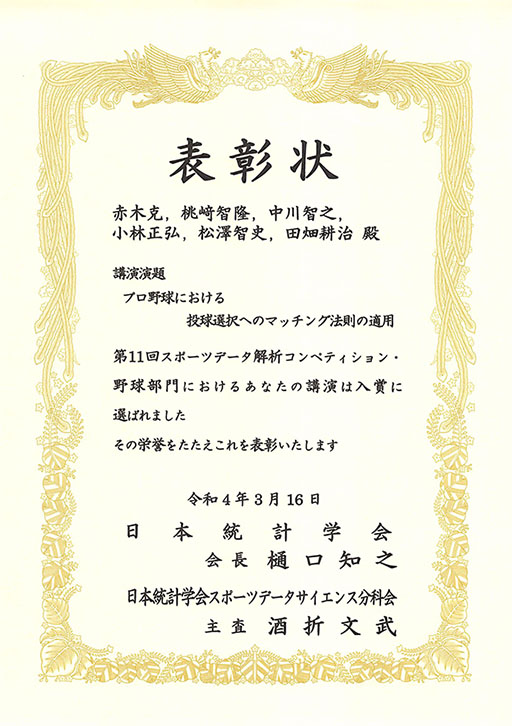 表彰状
赤木克，桃﨑智隆，中川智之，
小林正弘，松澤智史，田畑耕治 殿
講演演題
プロ野球における
投球選択へのマッチング法則の適用
第11回スポーツデータ解析コンペティション・
野球部門におけるあなたの講演は入賞に
選ばれました
その栄誉をたたえこれを表彰いたします
令和4年3月16日
日本統計学会
会長 樋口知之
日本統計学会スポーツデータサイエンス分科会
主査 酒折文武